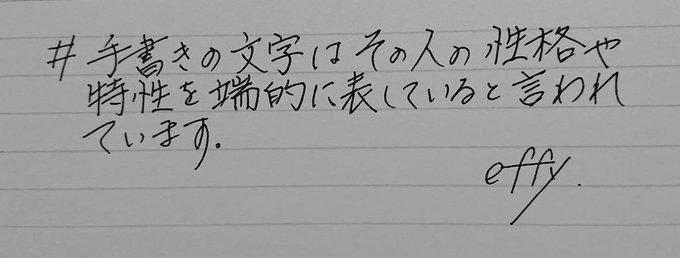 # 手書きの文字はその人の性格や
特性を端的に表していると言われ
ています.
effy.